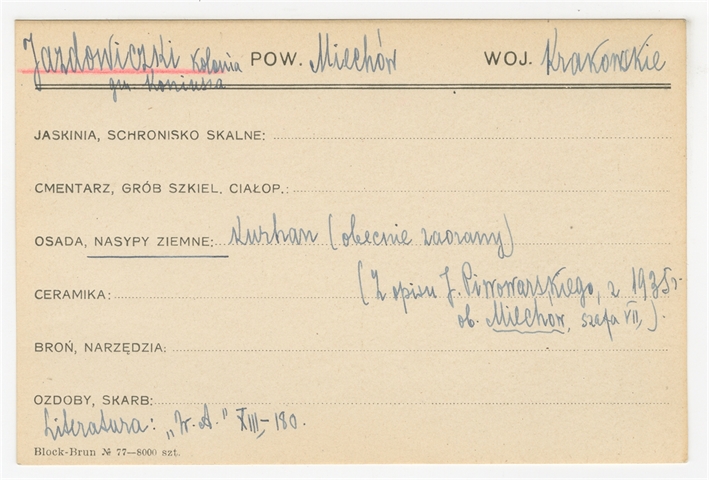 Jazdowiczki Kolonia POW. Miechów WOJ. Krakowskie
gm. Koniusza
JASKINIA, SCHRONISKO SKALNE:
CMENTARZ, GRÓB SZKIEL. CIAŁOP.:
OSADA, NASYPY ZIEMNE: Kurhan (obecnie zaorany)
CERAMIKA: (Z opisu J. Piwowarskiego, z 1935 r.
ob. Miechow, szafa VII,).
BROŃ, NARZĘDZIA:
OZDOBY, SKARB:
Literatura: „W. A." XIII-180.
Block-Brun № 77—8000 szt.